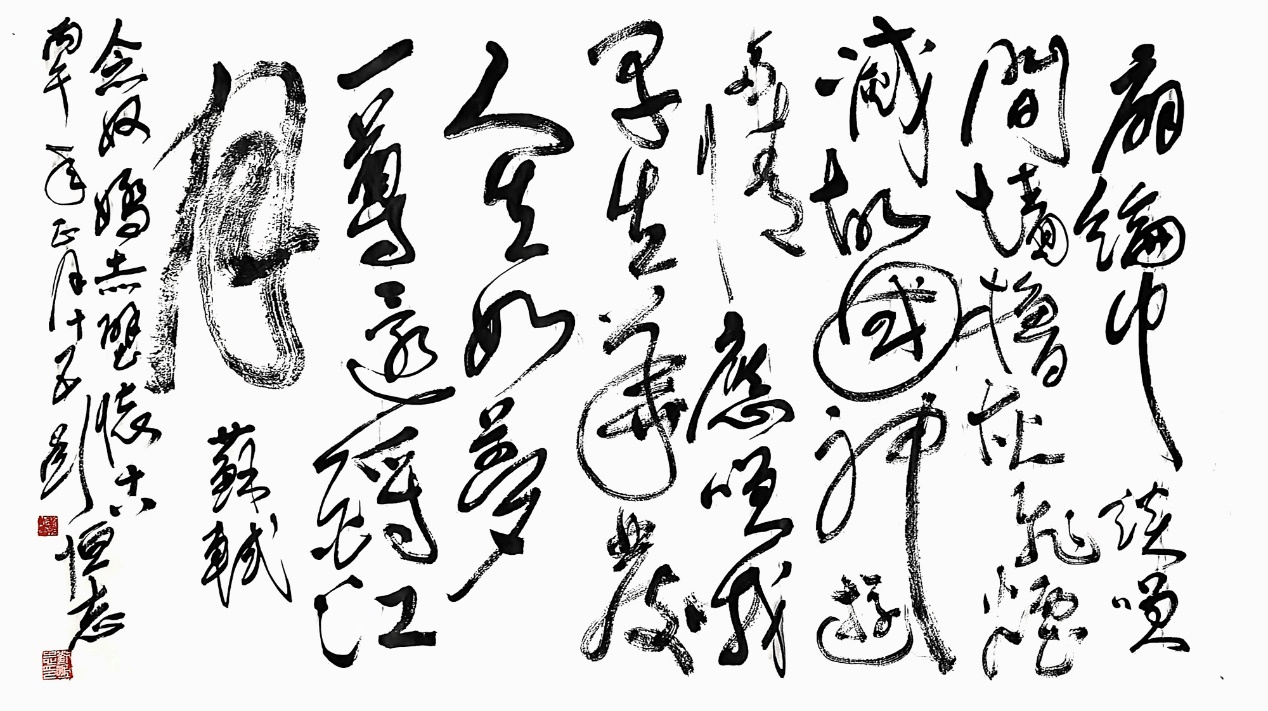 扇綸巾談咲
間墻櫓灰飛煙
滅故國神遊
多情應咲我
早生華髮
人生如夢
一尊還酹江
月 蘇軾
念奴嬌赤壁懷古
丙午年正月十五劉恒志